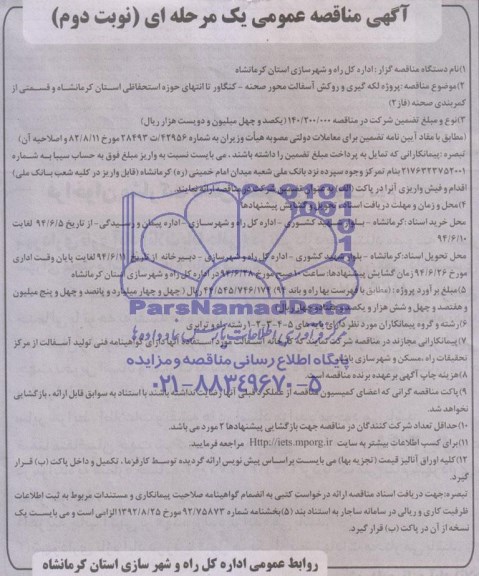 آگهی مناقصه عمومی یک مرحله ای (نوبت دوم)
۱)نام دستگاه مناقصه گزار: اداره کل راه و شهرسازی استان کرمانشاه
۲)موضوع مناقصه :پروژه لکه گیری و روکش آسفالت محور صحنه - کنگاور تا انتهای حوزه استحفاظی استان کرمانشاه و قسمتی از
کمربندی صحنه (فاز۲)
۳)نوع و مبلغ تضمین شرکت در مناقصه ۱۴۰/۲۰۰/۰۰۰(یکصد و چهل میلیون و دویست هزار ریال)
(مطابق با مفاد آیین نامه تضمین برای معاملات دولتی مصوبه هیأت وزیران به شماره ۴۲۹۵۶/ت ۲۸۴۹۳ مورخ ۸۲/۸/۱۱ و اصلاحیه آن)
تبصره :پیمانکارانی که تمایل به پرداخت مبلغ تضمین را داشته باشند ، می بایست نسبت به واریز مبلغ فوق به حساب سیبا به شماره
۲۱۷۶۳۲۳۷۵۲۰۰۱ بنام تمرکز وجوه سپرده نزد بانک ملی شعبه میدان امام خمینی (ره) کرمانشاه (قابل واریز در کلیه شعب بانک ملی)
اقدام و فیش واریزی آنرا در پاکت (الف) به عنوان تضمین شرکت در مناقصه ارائه نمایند.
۴)محل و زمان و مهلت دریافت اسناد، تحویل و گشایش پیشنهادها:
محل خرید اسناد :کرمانشاه - بلوار شهید کشوری - اداره کل راه و شهرسازی - اداره پیمان و رسیدگی- از تاریخ ۹۴/۶/۵ لغایت
۹۴/۶/۱۰
محل تحویل اسناد:کرمانشاه - بلوار شهید کشوری - اداره کل راه و شهرسازی - دبیرخانه از تاریخ ۹۴/۶/۱۱ لغایت پایان وقت اداری
مورخ ۹۴/۶/۲۶ زمان گشایش پیشنهادها: ساعت ۱۰ صبح مورخ ۹۴/۶/۲۸ در اداره کل راه و شهرسازی استان کرمانشاه
۵)مبلغ برآورد پروژه: (مطابق با فهرست بها راه و باند ۹۴) ریال (چهار میلیارد و پانصد و چهل و پنج میلیون
و هفتصد و چهل و شش هزار و یکصد و
۶)رشته و گروه پیمانکاران مورد نظر:دارای پایه های ۵-۴-۳-۲-۱ رشته راه و ترابری
۷)پیمانکارانی مجازند در مناقصه شرکت نمایند که کارخانه آسفالت مورد استفاده آنها دارای گواهینامه فنی تولید آسفالت از مرکز
تحقیقات راه ،مسکن و شهرسازی باشد
۸)هزینه چاپ آگهی برعهده برنده مناقصه است.
۹) پاکت مناقصه گرانی که اعضای کمیسیون مناقصه از عملکرد قبلی آنها رضایت نداشته باشند با استناد به سوابق قابل ارائه ، بازگشایی
نخواهد شد.
۱۰)حداقل تعداد شرکت کنندگان در مناقصه جهت بازگشایی پیشنهادها ۲ مورد می باشد.
۱۱)برای کسب اطلاعات بیشتر به سایت Http://iets.mporg.ir مراجعه فرمایید.
۱۲)کلیه اوراق آنالیز قیمت (تجزیه بها) می بایست براساس پیش نویس ارائه گردیده توسط کارفرما، تکمیل و داخل پاکت (ب) قرار
گیرد.
تبصره:جهت دریافت اسناد مناقصه ارائه درخواست کتبی به انضمام گواهینامه صلاحیت پیمانکاری و مستندات مربوط به ثبت اطلاعات
ظرفیت کاری و ریالی در سامانه ساجار به استناد بند (۵)بخشنامه شماره ۹۲/۷۵۸۷۳ مورخ ۱۳۹۲/۸/۲۵ الزامی است و می بایست یک
نسخه از آن در پاکت (ب) قرار گیرد.
روابط عمومی اداره کل راه و شهر سازی استان کرمانشاه
ParsNamadData
پایگاه اطلاع رسانی مناقصه و مزایده
۰۲۱-۸۸۳۴۹۶۷۰-۵